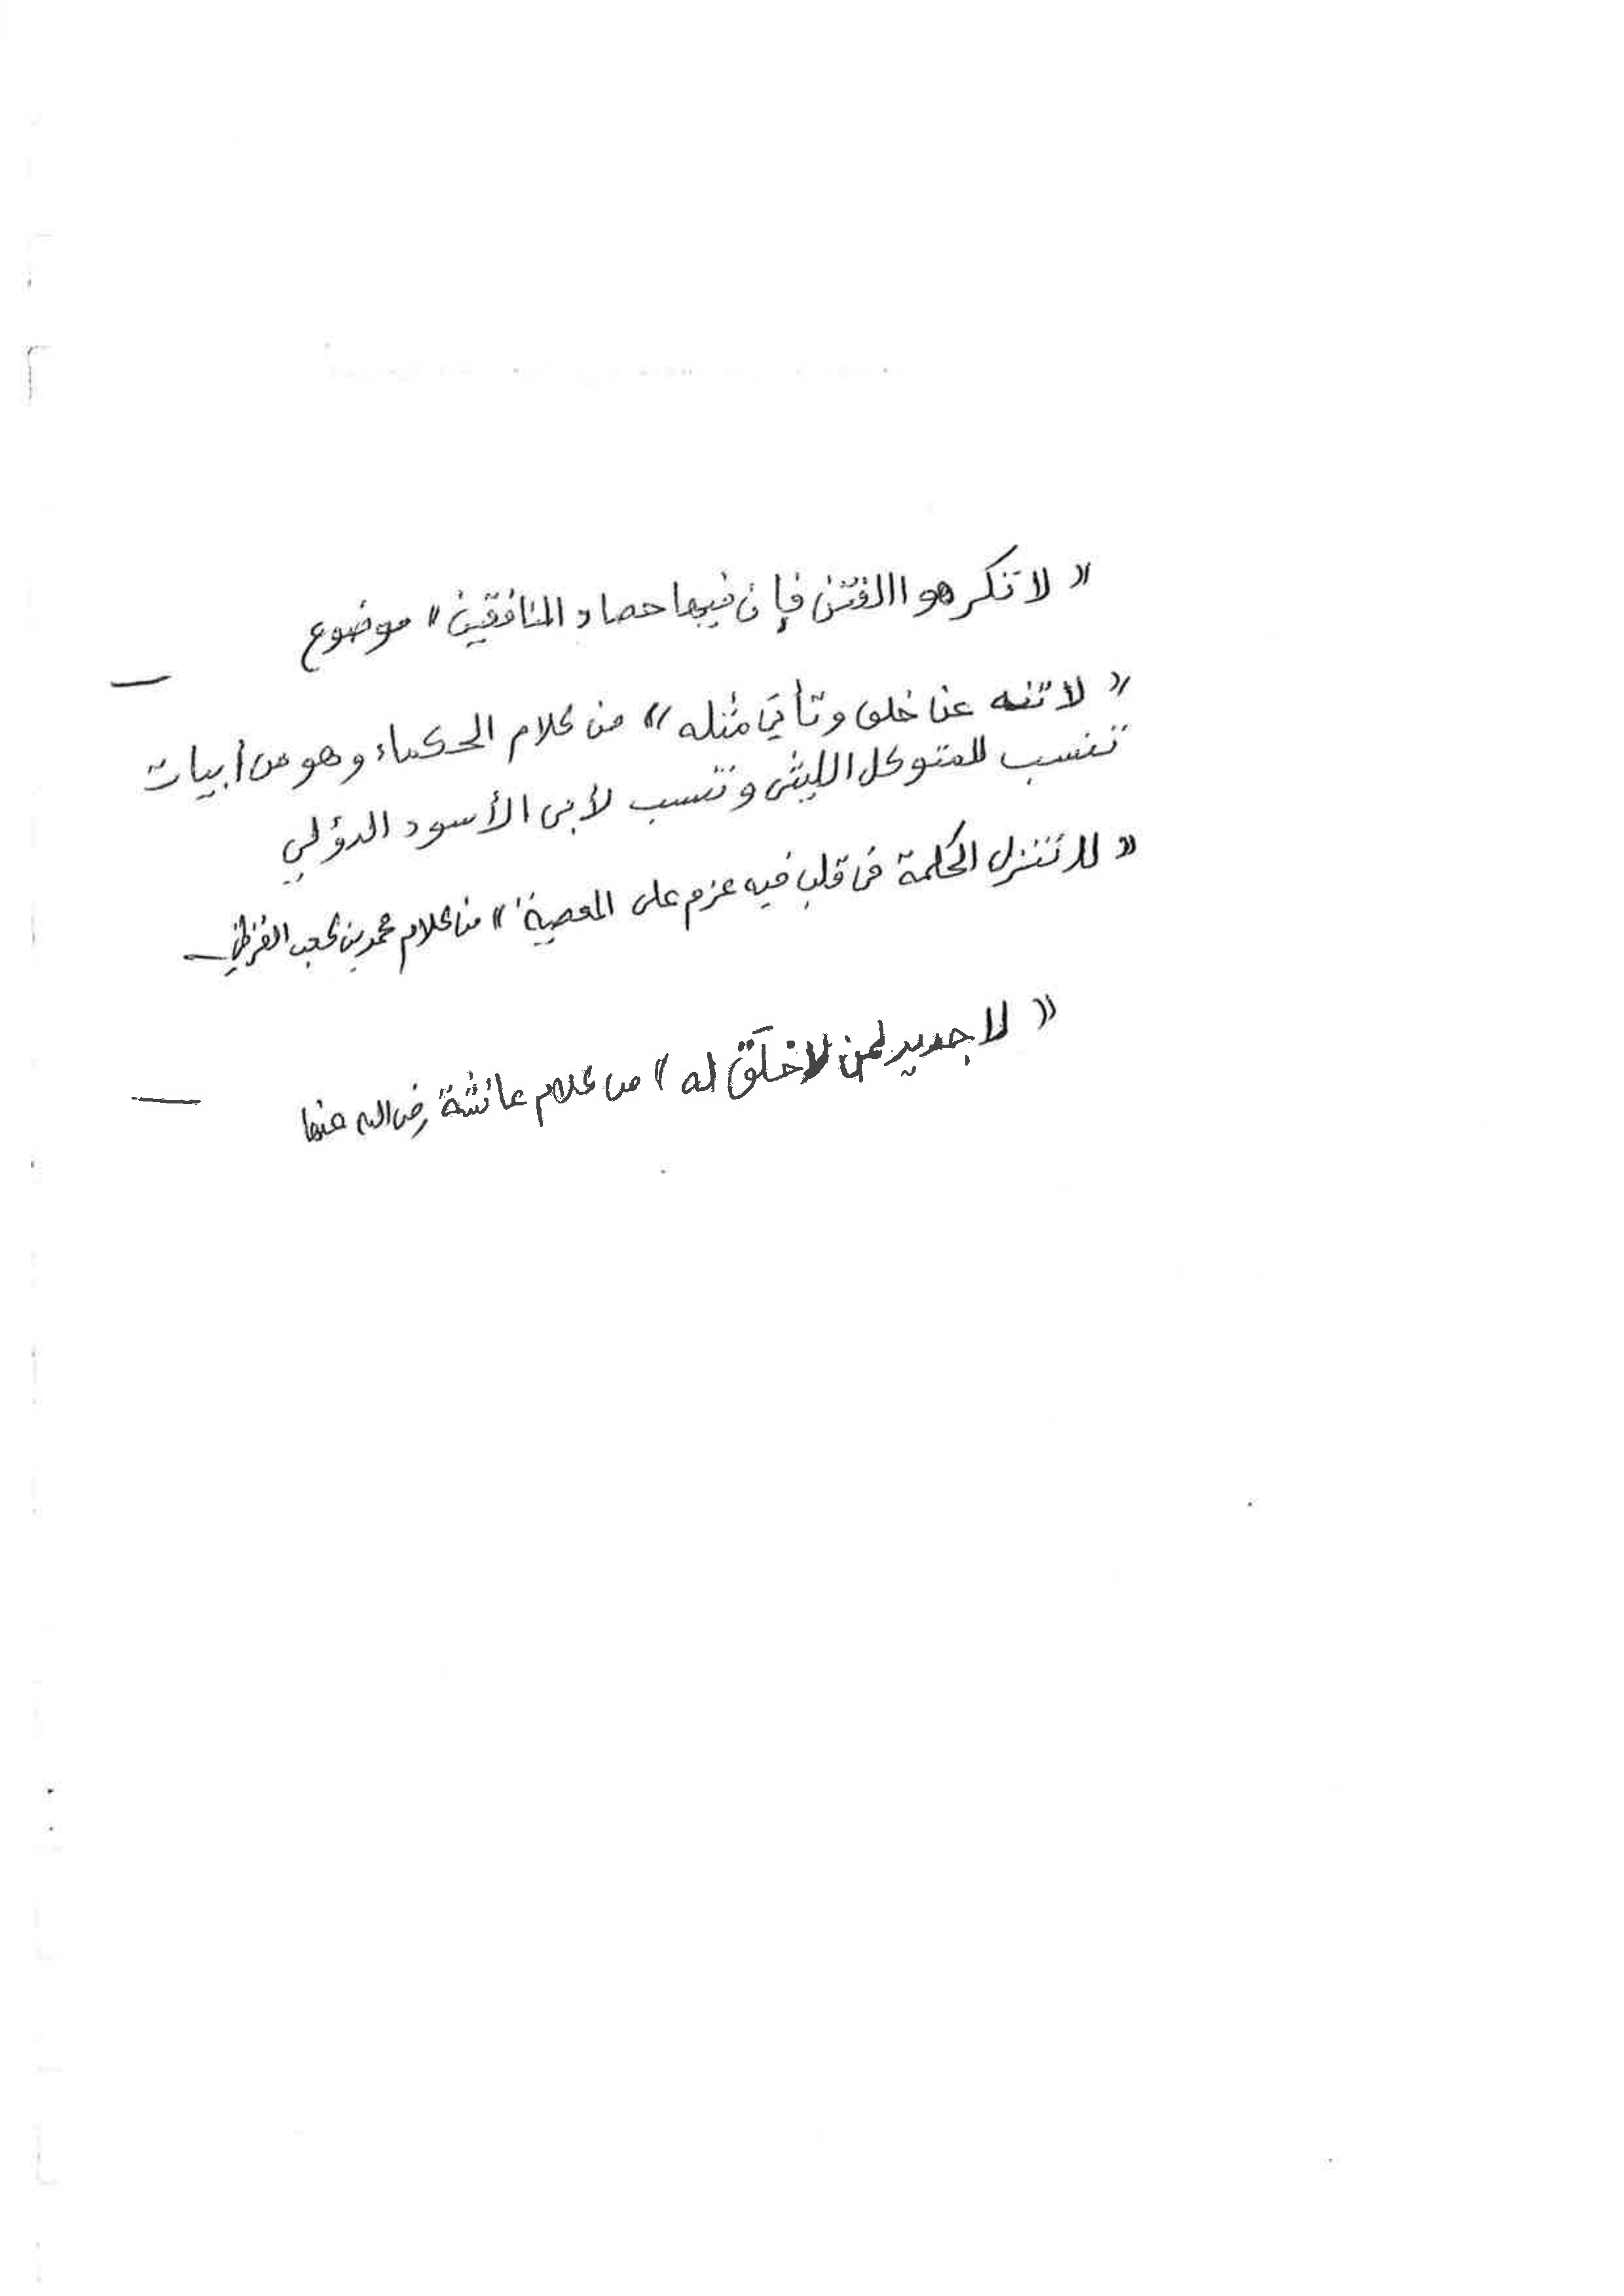 « لا تكرهوا الفتن فإن فيها حصاد المنافقين » موضوع
« لا تنه عن خلق وتأتيَ مثله » من كلام الحكماء وهو من أبيات
تنسب للمتوكل الليثى وتنسب لأبى الأسود الدؤلي
« لا تنزل الحكمة فى قلب فيه عزم على المعصية » من كلام محمد بن كعب القرظي
« لا جديد لمن لا خَلَقَ له » من كلام عائشة رضى الله عنها